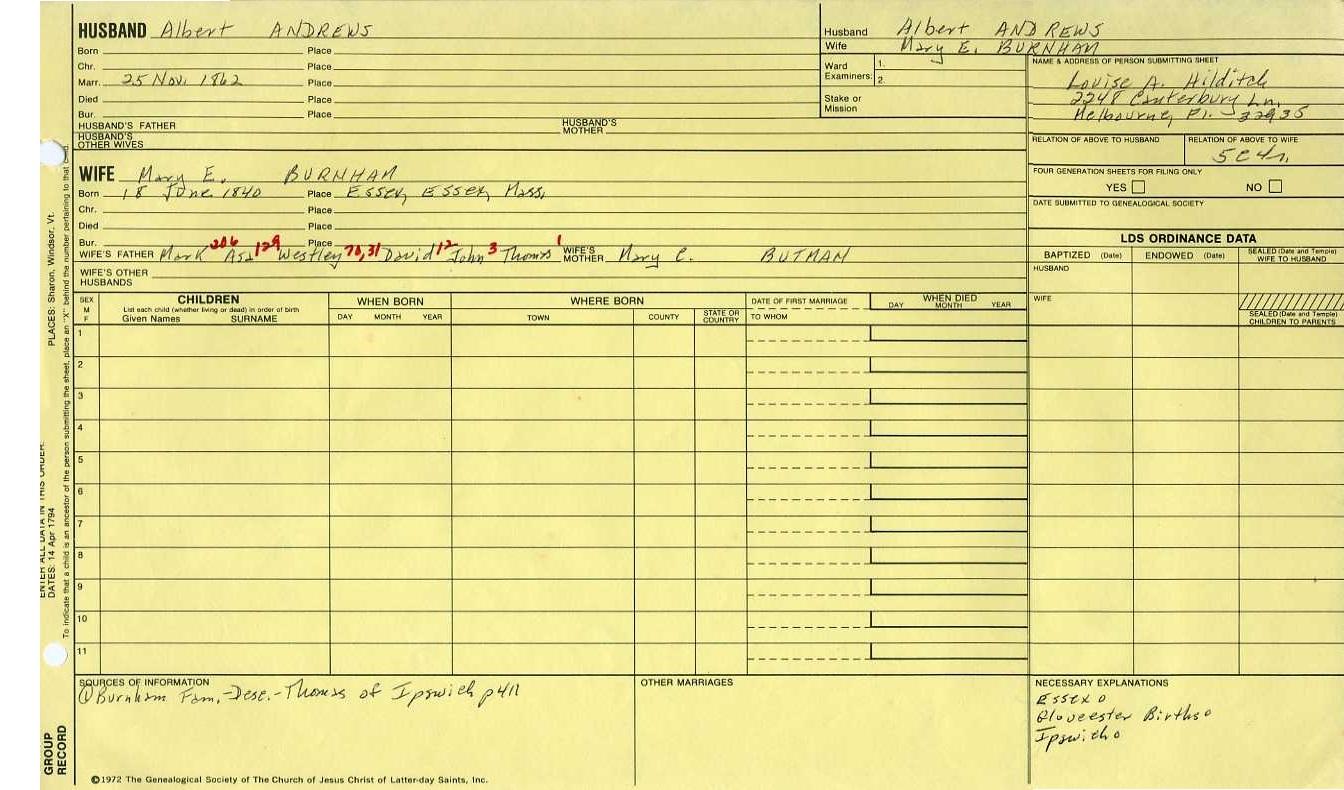 HUSBAND Albert ANDREWS
Born Place
Chr. Place
Marr. 25 Nov. 1862 Place
Died Place
Bur. Place
HUSBAND'S FATHER HUSBAND'S MOTHER
HUSBAND'S OTHER WIVES
Husband Albert ANDREWS
Wife Mary E. BURNHAM
Ward Examiners: 1.
2.
Stake or Mission
NAME & ADDRESS OF PERSON SUBMITTING SHEET
Louise A. Hilditch
2248 Canterbury Ln.
Melbourne, Fl. 32935
RELATION OF ABOVE TO HUSBAND RELATION OF ABOVE TO WIFE
5C4r.
FOUR GENERATION SHEETS FOR FILING ONLY
YES NO
DATE SUBMITTED TO GENEALOGICAL SOCIETY
WIFE Mary E. BURNHAM
Born 18 June 1840 Place Essex, Essex, Mass.
Chr. Place
Died Place
Bur. Place
WIFE'S FATHER Mark 206 Asa 129 Westley 70,31 David 12 John 3 Thomas 1 WIFE'S MOTHER Mary C. BUTMAN
WIFE'S OTHER HUSBANDS
LDS ORDINANCE DATA
BAPTIZED (Date) ENDOWED (Date) SEALED (Date and Temple) WIFE TO HUSBAND
HUSBAND
WIFE
SEALED (Date and Temple) CHILDREN TO PARENTS
SEX M F
CHILDREN
List each child (whether living or dead) in order of birth
Given Names SURNAME
WHEN BORN
DAY MONTH YEAR
WHERE BORN
TOWN COUNTY STATE OR COUNTRY
DATE OF FIRST MARRIAGE
TO WHOM
WHEN DIED
DAY MONTH YEAR
1
2
3
4
5
6
7
8
9
10
11
SOURCES OF INFORMATION
① Burnham Fam.-Desc.-Thomas of Ipswich p411
OTHER MARRIAGES
NECESSARY EXPLANATIONS
Essex o
Gloucester Births o
Ipswich o
©1972 The Genealogical Society of The Church of Jesus Christ of Latter-day Saints, Inc.
GROUP RECORD
ENTER ALL DATA IN THIS ORDER:
DATES: 14 Apr 1794
PLACES: Sharon, Windsor, Vt.
To indicate that a child is an ancestor of the person submitting the sheet, place an "X" behind the number pertaining to that child.